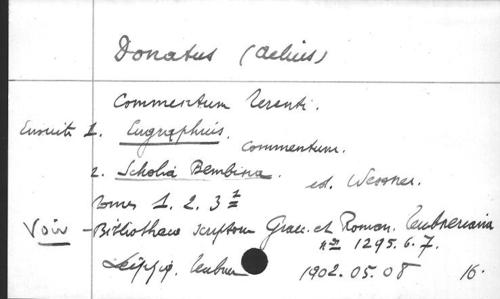 Donatus (Aelius)
Commentum Terenti.
Ensuite 1. Eugraphius. Commentum.
2. Scholia Bembina. ed. Wessner.
tomes 1. 2. 3
Voir - Bibliotheca scriptorum Graec. et Roman. Teubneriana
nos 1295. 6. 7.
Leipzig, Teubner 1902. 05. 08 16.